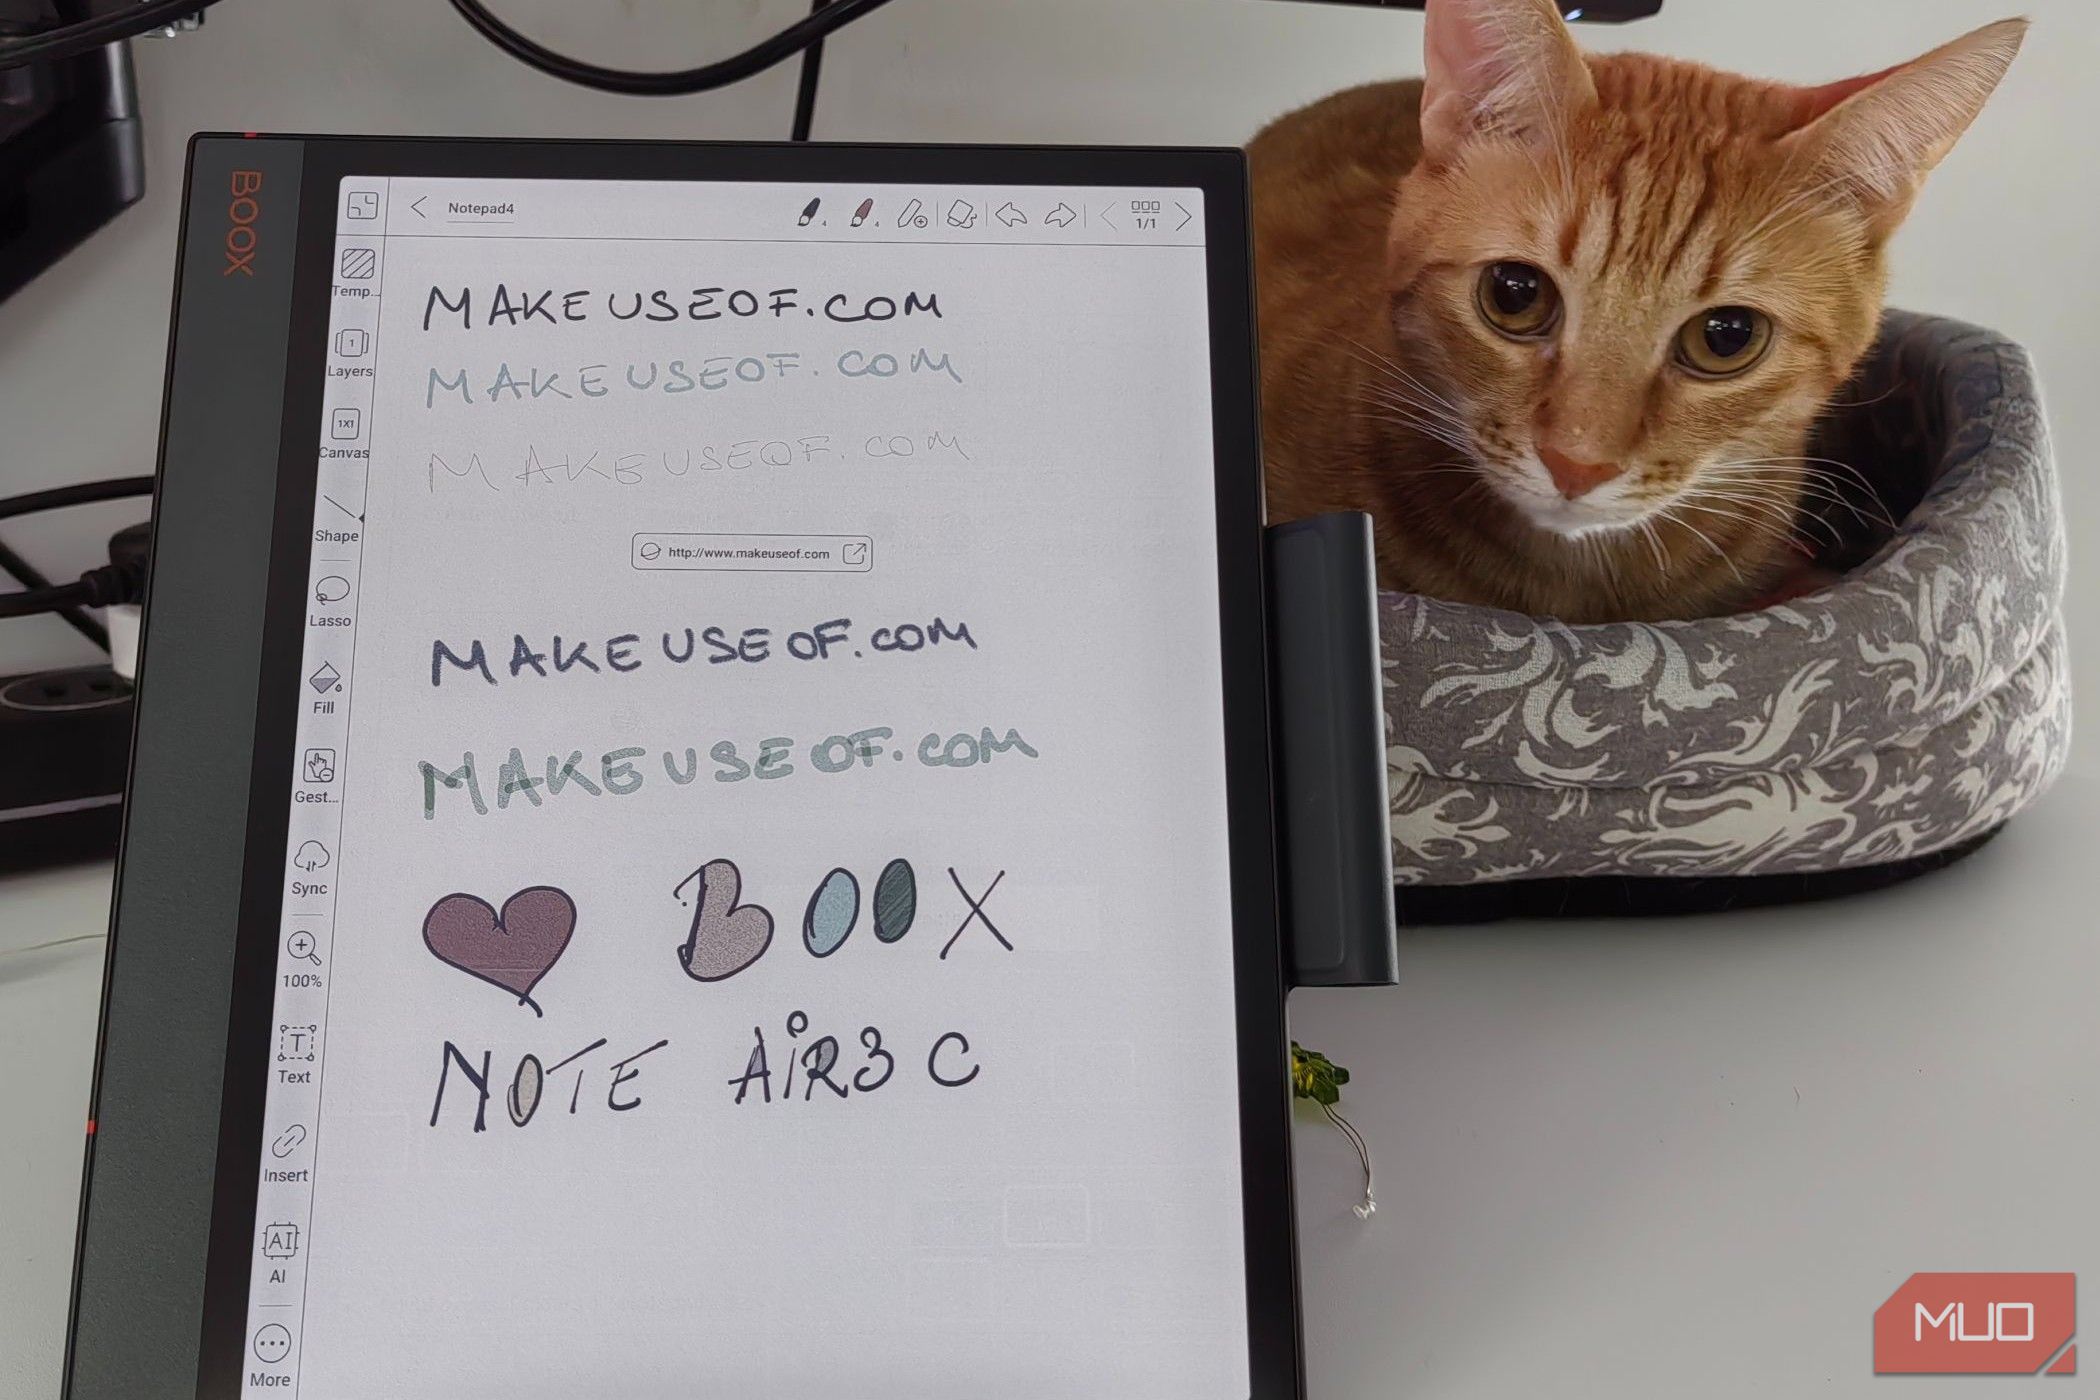 BOOX
Notepad4
1/1
Temp...
1
Layers
1X1
Canvas
Shape
Lasso
Fill
Gest...
Sync
100%
T
Text
Insert
AI
AI
More
MAKEUSEOF.COM
MAKEUSEOF.COM
MAKEUSEOF.COM
http://www.makeuseof.com
MAKEUSEOF.COM
MAKEUSEOF.COM
BOOX
NOTE AiR3 C
MUO